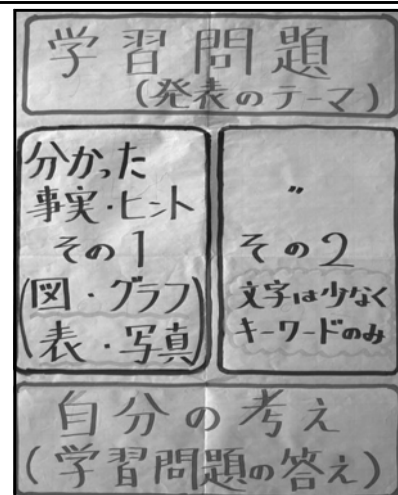 学習問題
(発表のテーマ)
分かった
事実・ヒント
その1
(図・グラフ)
(表・写真)
〃
その2
文字は少なく
キーワードのみ
自分の考え
(学習問題の答え)